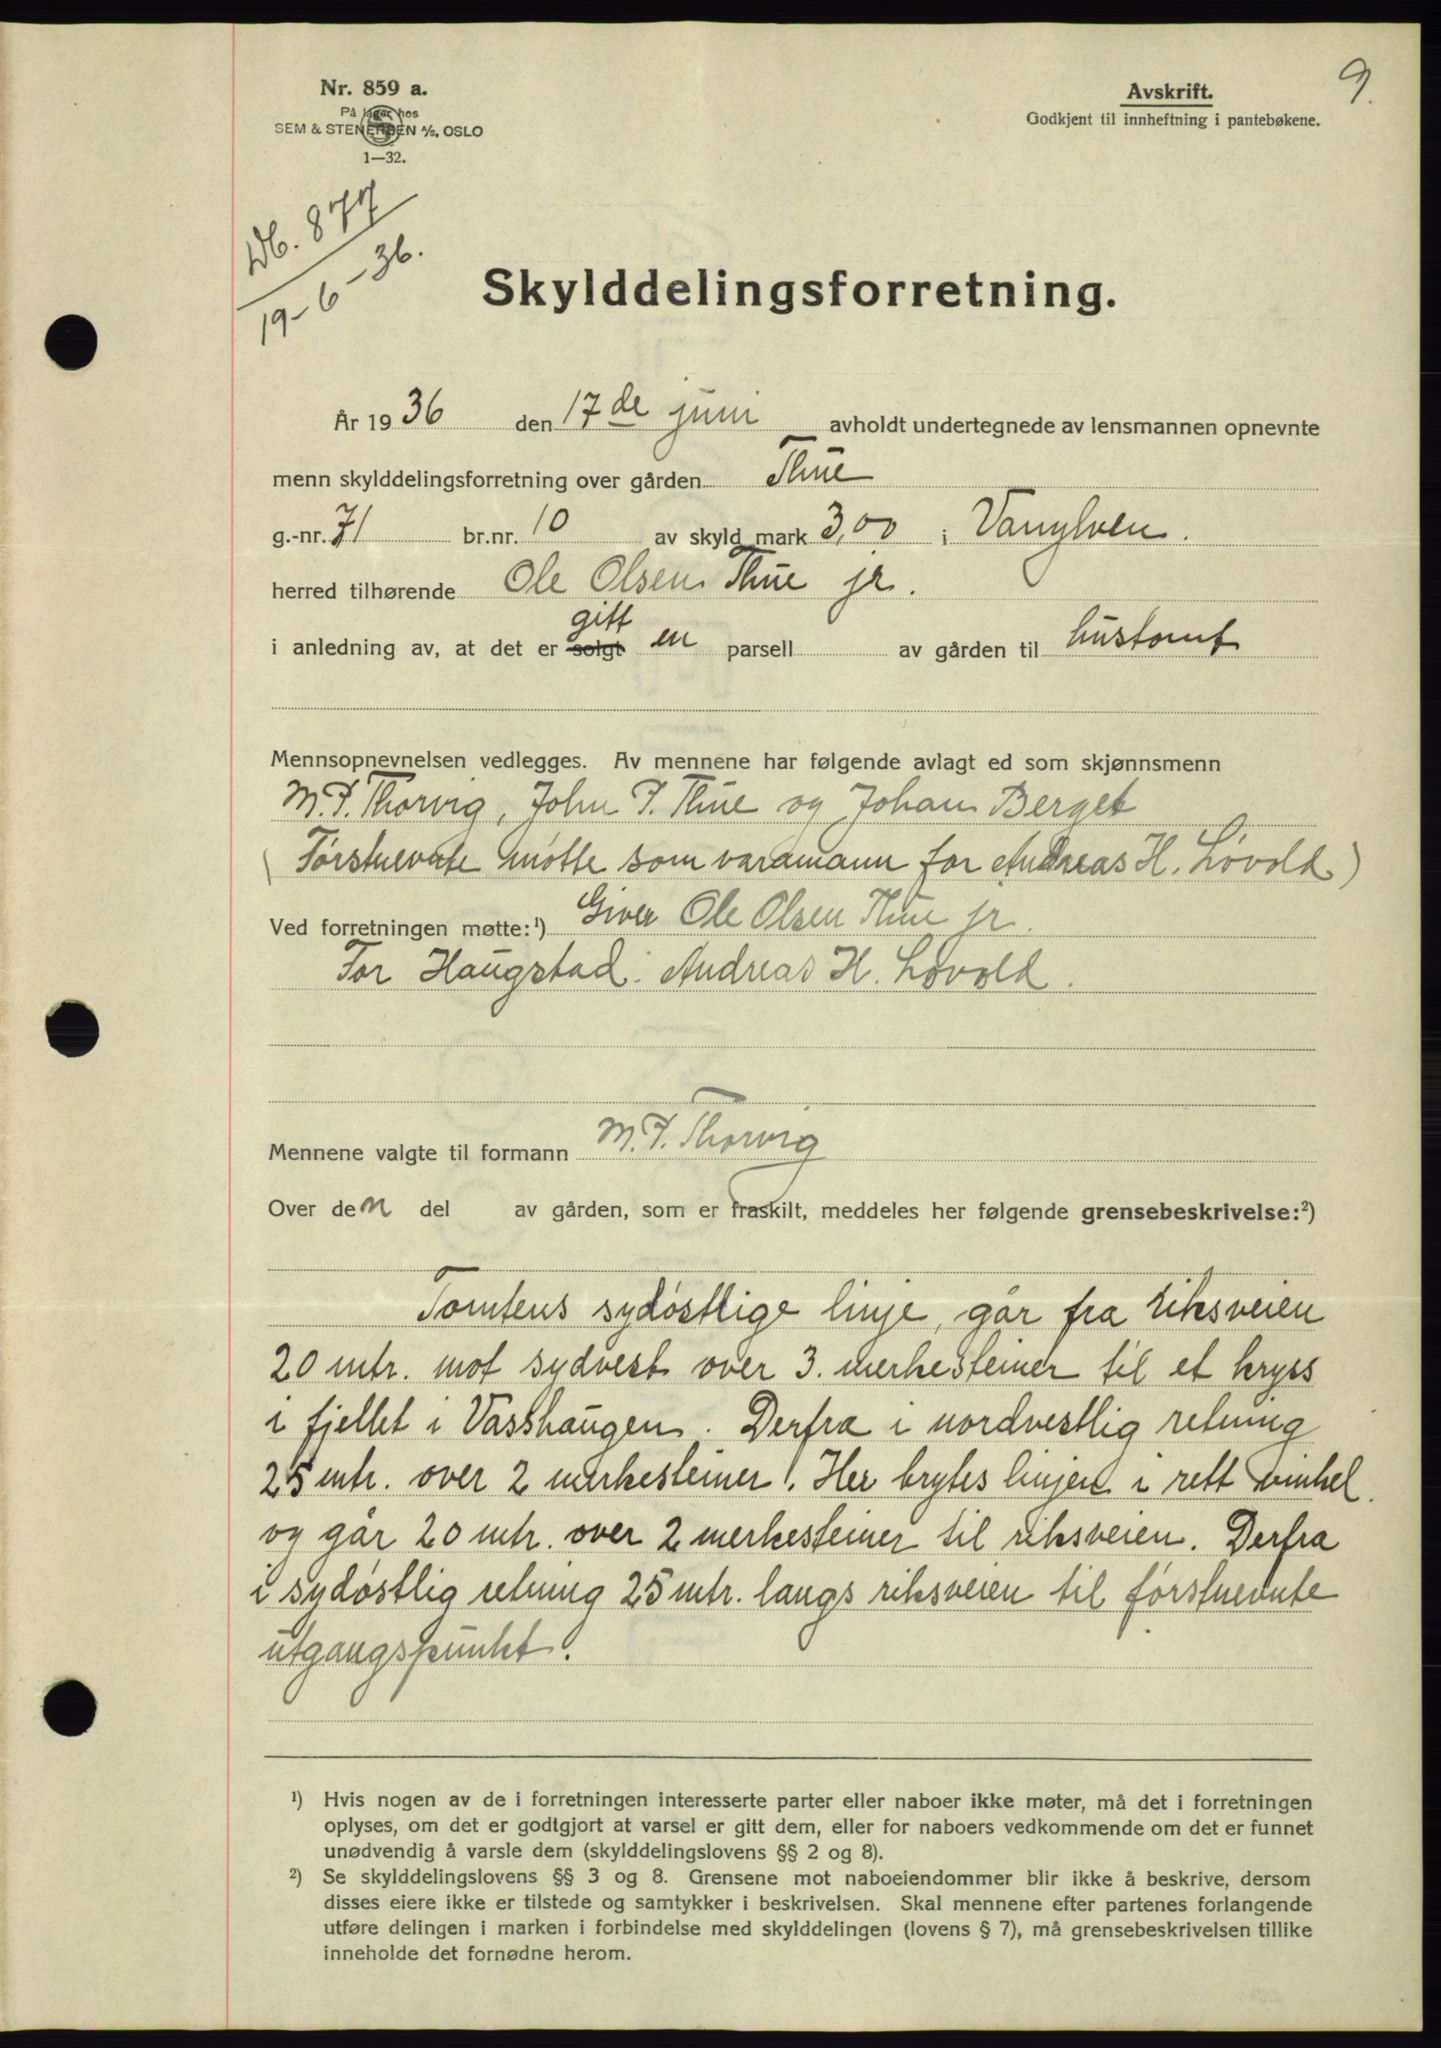 9.
Nr. 859 a.
På lager hos
SEM & STENERSEN A/S, OSLO
1—32.
Avskrift.
Godkjent til innheftning i pantebøkene.
Db. 877
19-6-36.
Skylddelingsforretning.
År 1936 den 17de juni avholdt undertegnede av lensmannen opnevnte
menn skylddelingsforretning over gården Thue
g.-nr. 71 br.nr. 10 av skyld mark 3,00 i Vanylven.
herred tilhørende Ole Olsen Thue jr.
gitt
i anledning av, at det er solgt en parsell av gården til hustomt
Mennsopnevnelsen vedlegges. Av mennene har følgende avlagt ed som skjønnsmenn
M. P. Thorvig, John P. Thue og Johan Berget
(Førstnevnte møtte som varamann for Andreas H. Løvold)
Ved forretningen møtte:¹) Giver Ole Olsen Thue jr.
For Haugstad: Andreas H. Løvold.
Mennene valgte til formann M. P. Thorvig
Over den del av gården, som er fraskilt, meddeles her følgende grensebeskrivelse:²)
Tomtens sydøstlige linje, går fra riksveien
20 mtr. mot sydvest over 3. merkesteiner til et kryss
i fjellet i Vasshaugen. Derfra i nordvestlig retning
25 mtr. over 2 merkesteiner. Her brytes linjen i rett vinkel.
og går 20 mtr. over 2 merkesteiner til riksveien. Derfra
i sydøstlig retning 25 mtr. langs riksveien til førstnevnte
utgangspunkt.
¹) Hvis nogen av de i forretningen interesserte parter eller naboer ikke møter, må det i forretningen
oplyses, om det er godtgjort at varsel er gitt dem, eller for naboers vedkommende om det er funnet
unødvendig å varsle dem (skylddelingslovens §§ 2 og 8).
²) Se skylddelingslovens §§ 3 og 8. Grensene mot naboeiendommer blir ikke å beskrive, dersom
disses eiere ikke er tilstede og samtykker i beskrivelsen. Skal mennene efter partenes forlangende
utføre delingen i marken i forbindelse med skylddelingen (lovens § 7), må grensebeskrivelsen tillike
inneholde det fornødne herom.